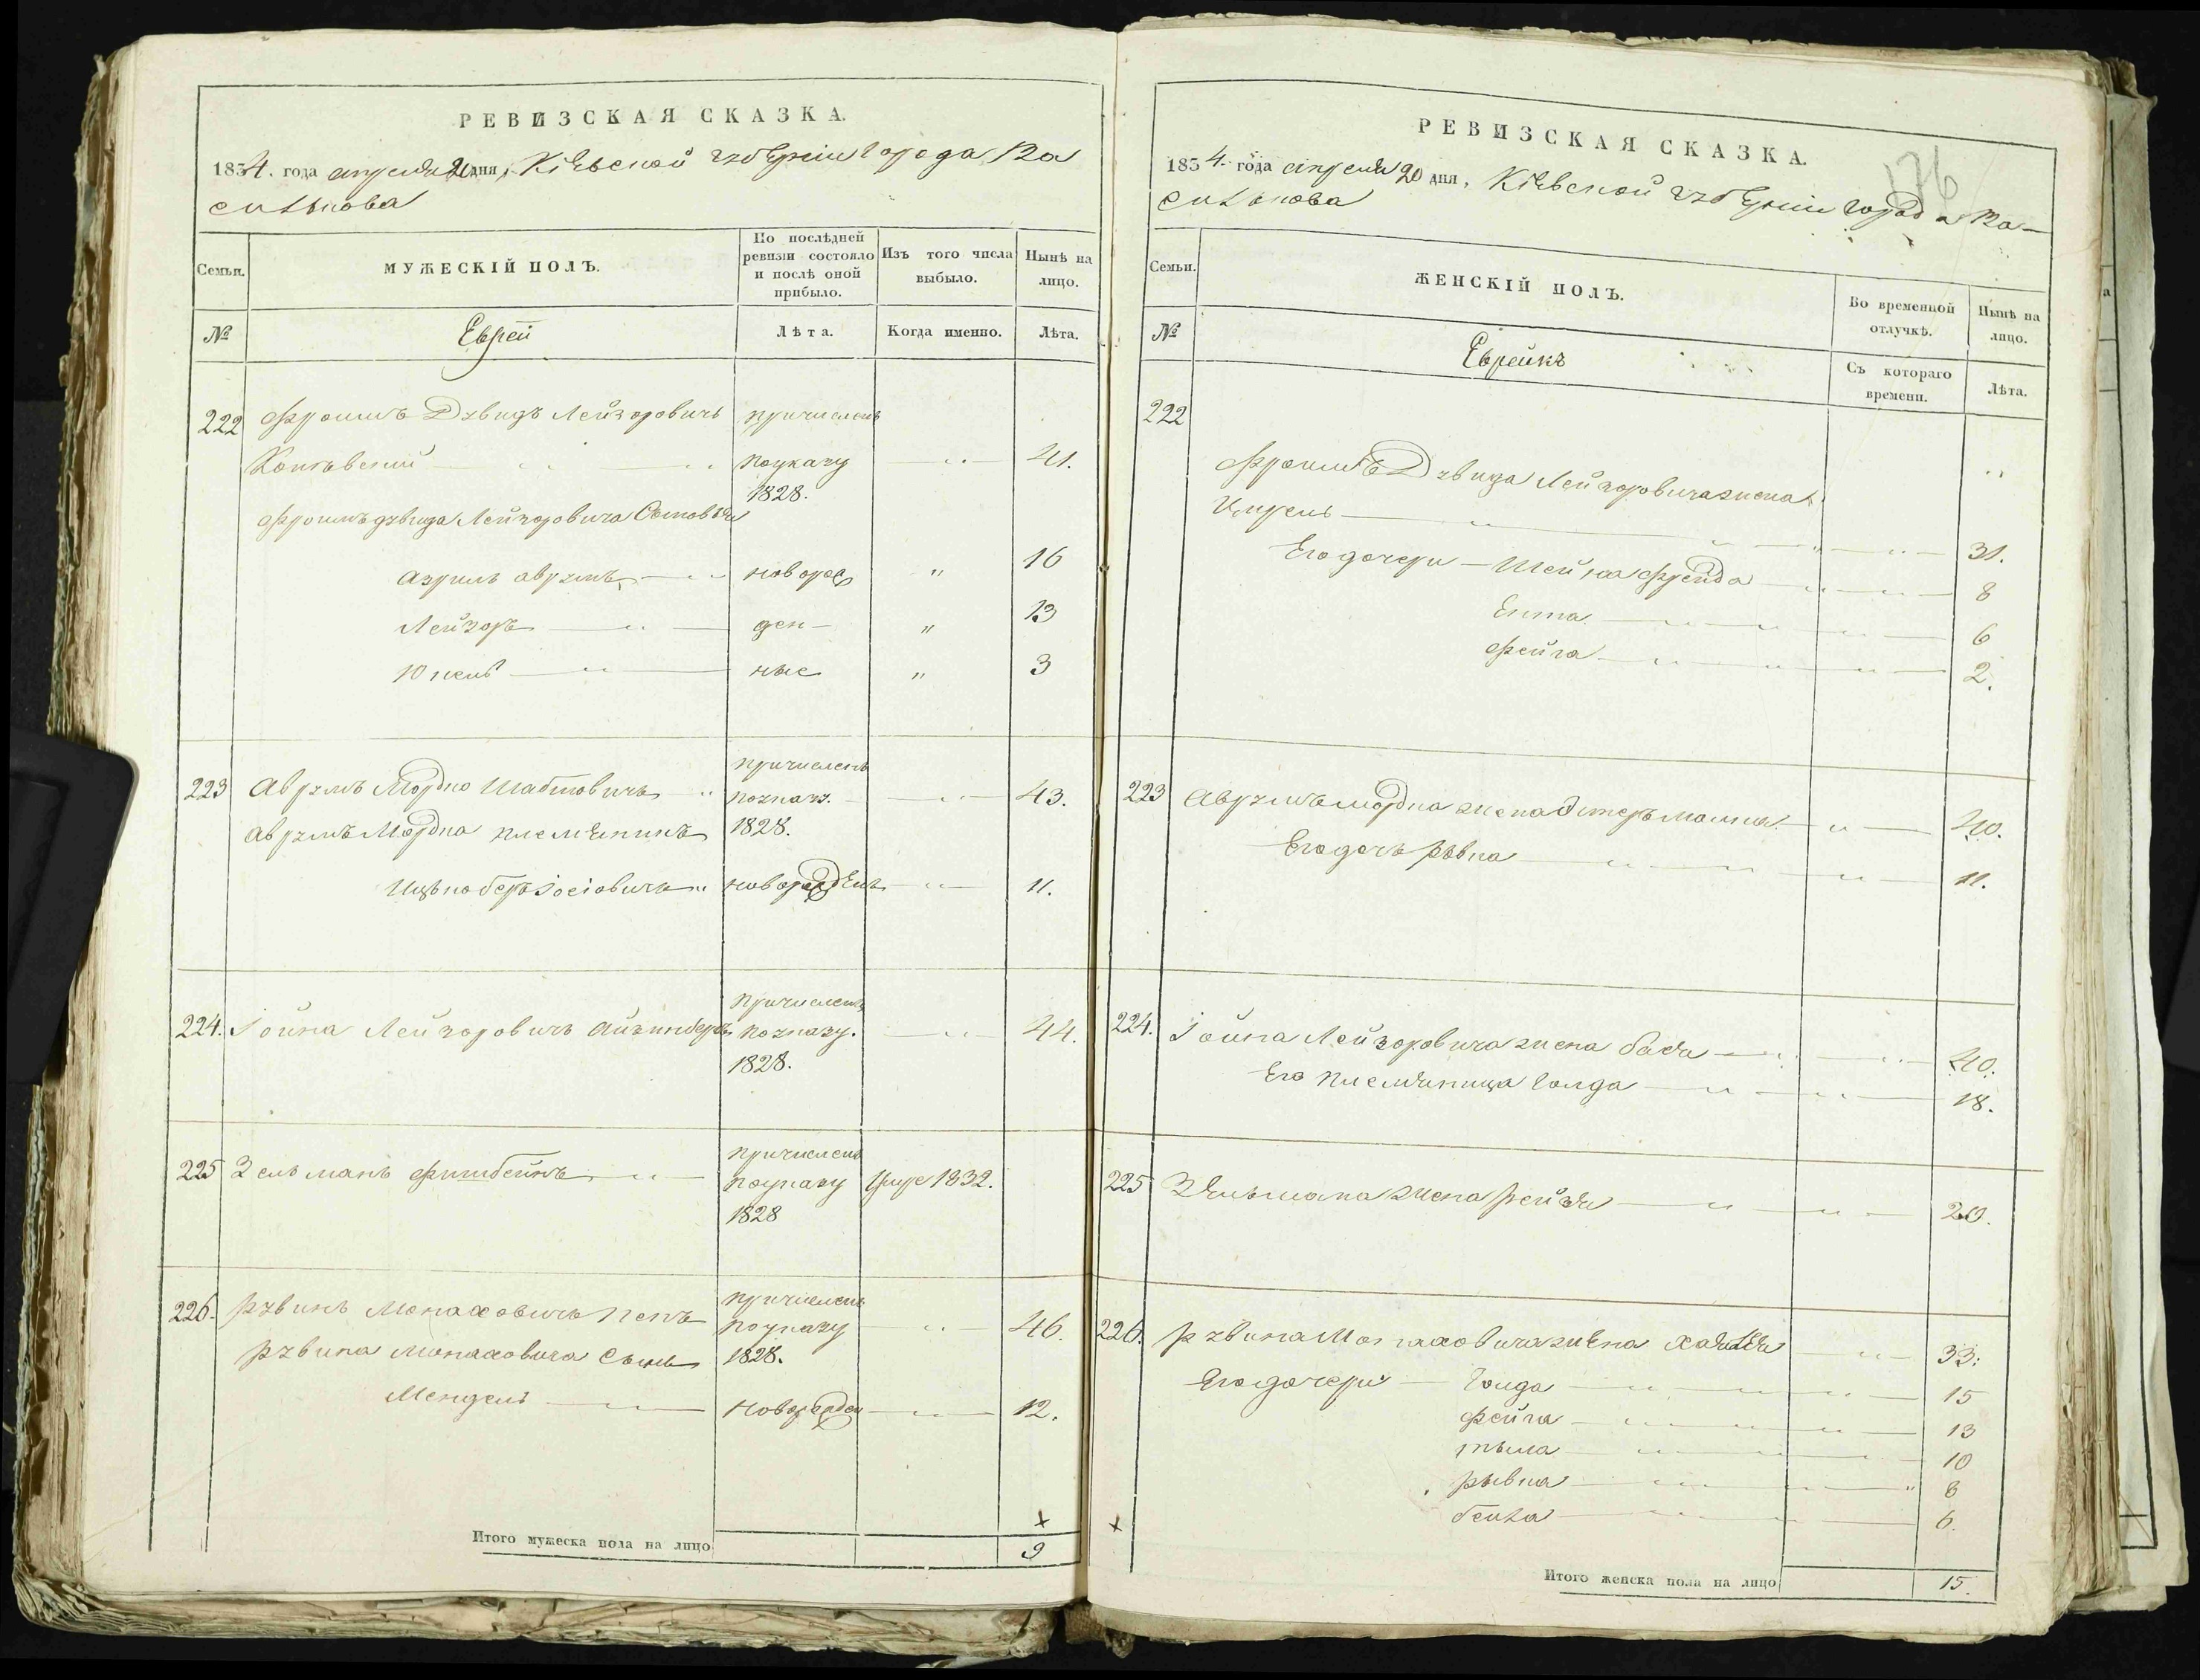 РЕВИЗСКАЯ СКАЗКА.
1834. года апреля 20 дня, Кіевской губерніи города Ва
силькова
Семьи.
МУЖЕСКІЙ ПОЛЪ.
По послѣдней
ревизіи состояло
и послѣ оной
прибыло.
Изъ того числа
выбыло.
Нынѣ на
лицо.
№
Еврей
Лѣта.
Когда именно.
Лѣта.
222 Фроимъ Дувидъ Лейзоровичъ причисленъ
поуказу 41.
1828.
Фроимъ дувида Лейзоровича Сыновья
Азриль аврумъ новорож 16
Лейзоръ ден- 13
Юкель ные 3
причисленъ
223 Аврумъ Мордко Шабтовичъ поуказу. 43.
аврумъ Мордка племеникъ 1828.
Ицько беръ Іосіовичъ новорожденъ 11.
причисленъ
224. Іойна Лейзоровичъ поуказу. 44.
1828.
причисленъ
225 Зельманъ Фишбейнъ поуказу умре 1832.
1828
причисленъ
226. рувинъ Монаховичъ поуказу 46.
рувина монаховича Сынъ 1828.
Мендель новорожден 12.
Итого мужеска пола на лицо 9
176
РЕВИЗСКАЯ СКАЗКА.
1834. года апреля 20 дня, Кіевской губерніи города Ва-
силькова
Семьи.
ЖЕНСКІЙ ПОЛЪ.
Во временной
отлучкѣ.
Нынѣ на
лицо.
№
Еврейкъ
Съ котораго
времени.
Лѣта.
222
Фроимъ Дувида Лейзоровича жена
31.
Его дочери – Шейна Фрейда 8
Ента 6
Фейга 2.
223 Аврумъ мордка жена Эстеръ малка 40.
Его дочь рывка 11.
224. Іойна Лейзоровича жена бася 40.
Его племяница Голда 18.
225 Зельмана жена рейзя 20.
226. рувина Монаховича жена 33.
Его дочери – Голда 15
фейга 13
10
рывка 8
бейла 6.
Итого женска пола на лицо 15.